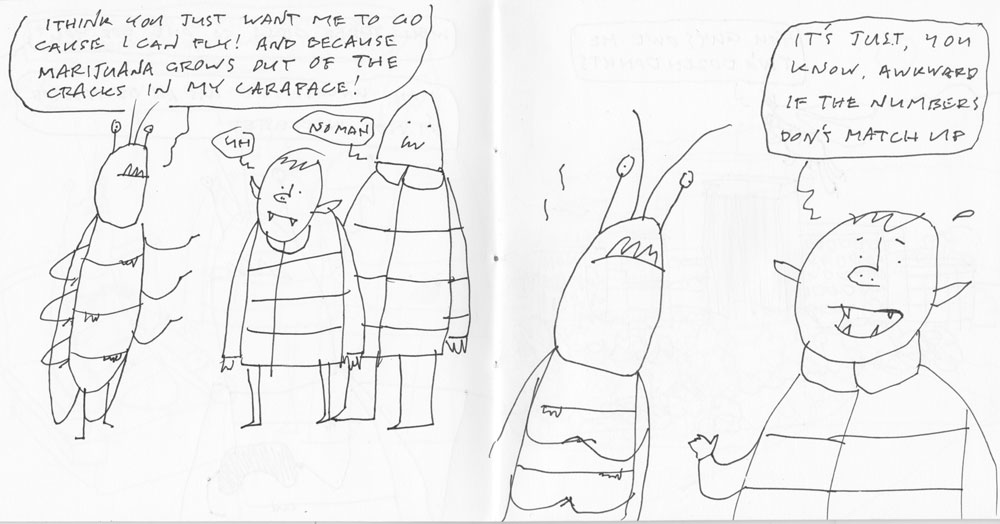 I THINK YOU JUST WANT ME TO GO
CAUSE I CAN FLY! AND BECAUSE
MARIJUANA GROWS OUT OF THE
CRACKS IN MY CARAPACE!
UH
NO MAN
IT'S JUST, YOU
KNOW, AWKWARD
IF THE NUMBERS
DON'T MATCH UP